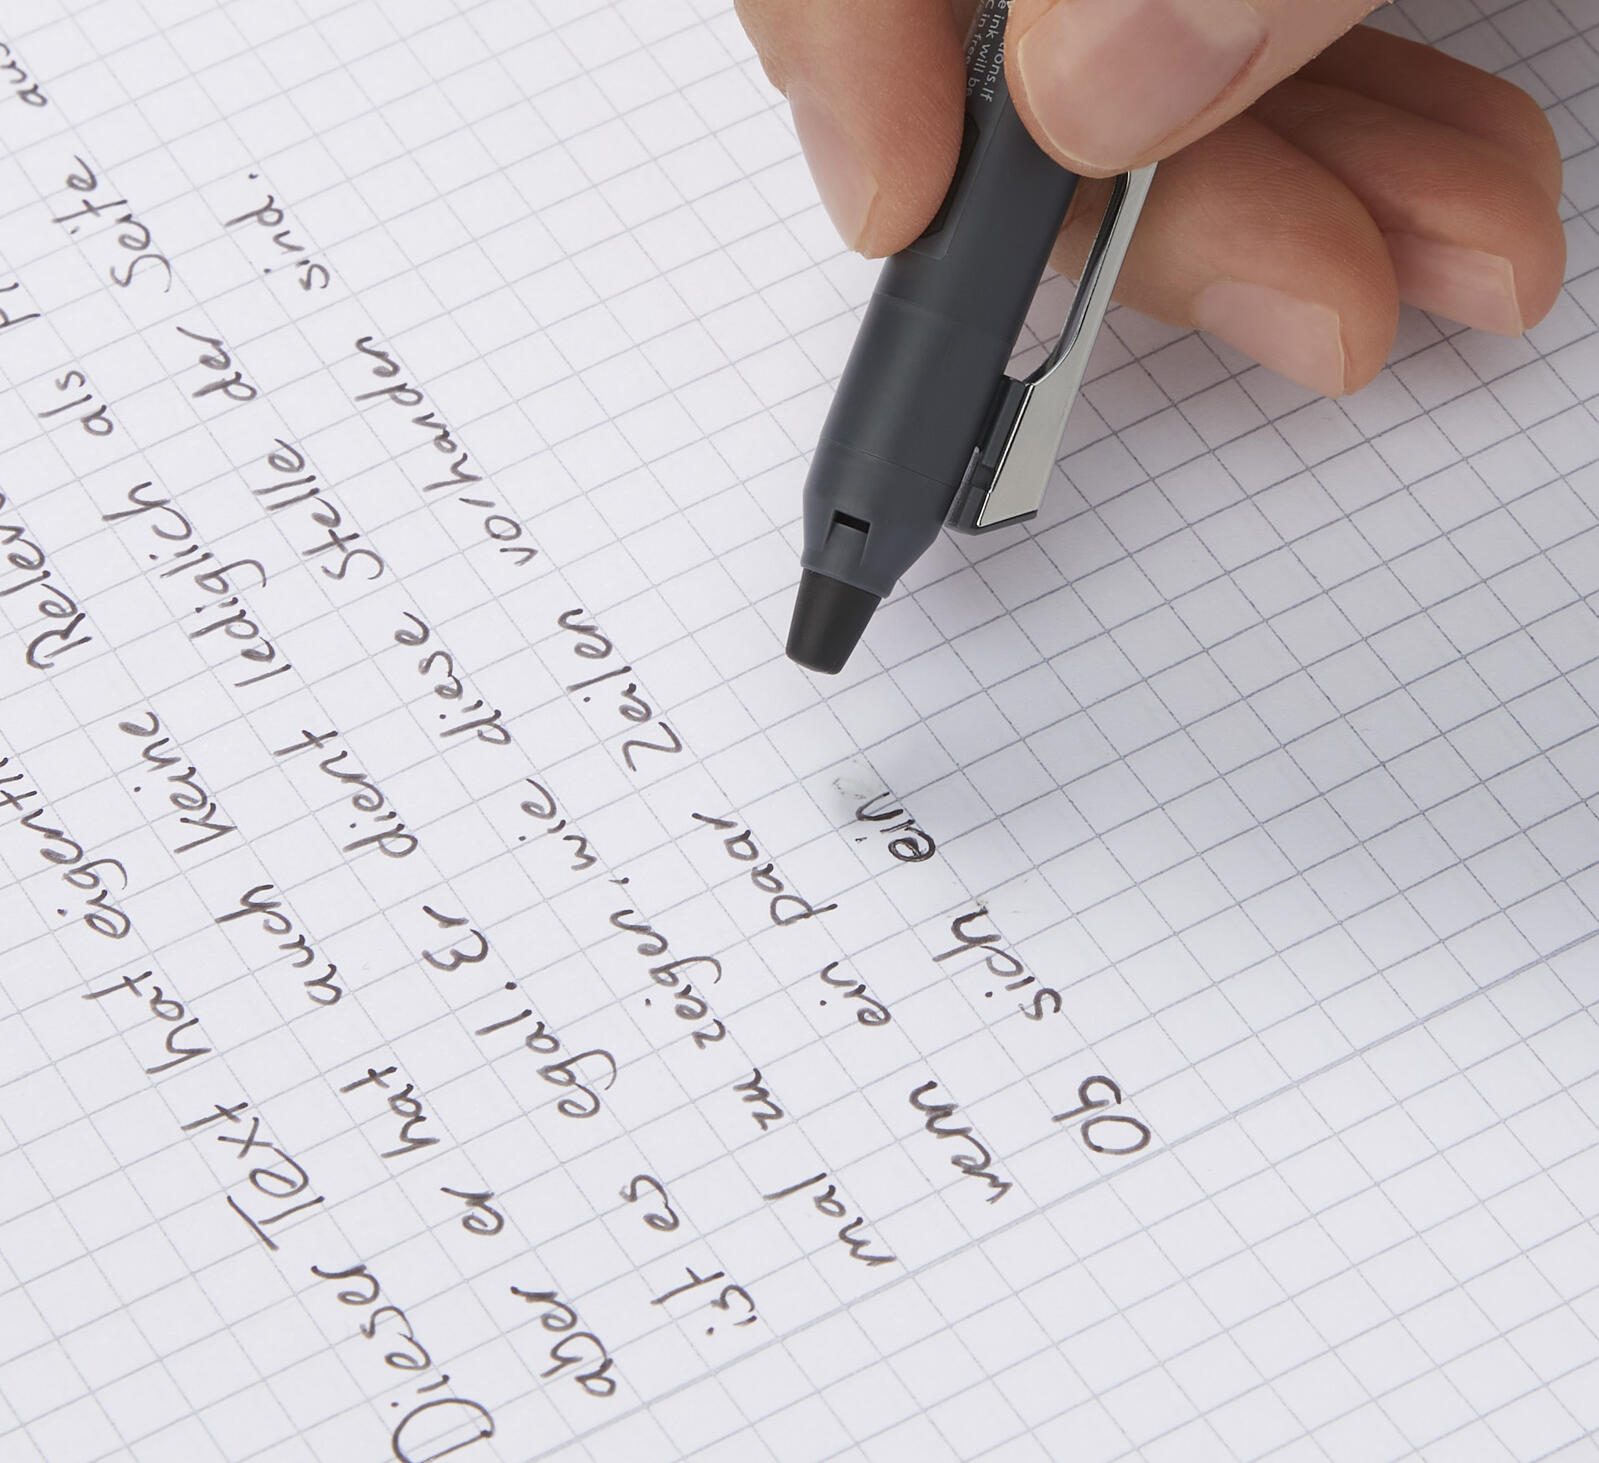 Dieser Text hat
aber er hat auch keine
ist es egal. Er dient lediglich als
mal zu zeigen, wie diese Stelle der Seite aus
wenn ein paar Zeilen vorhanden sind.
Ob sich ein
If
ink will be